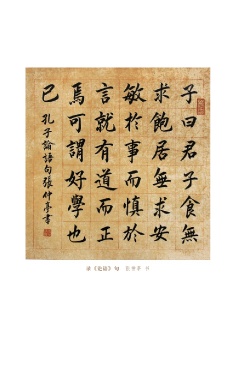 子曰君子食無
求飽居無求安
敏於事而慎於
言就有道而正
焉可謂好學也
已 孔子論語句張仲亭書
录《论语》句 张仲亭 书